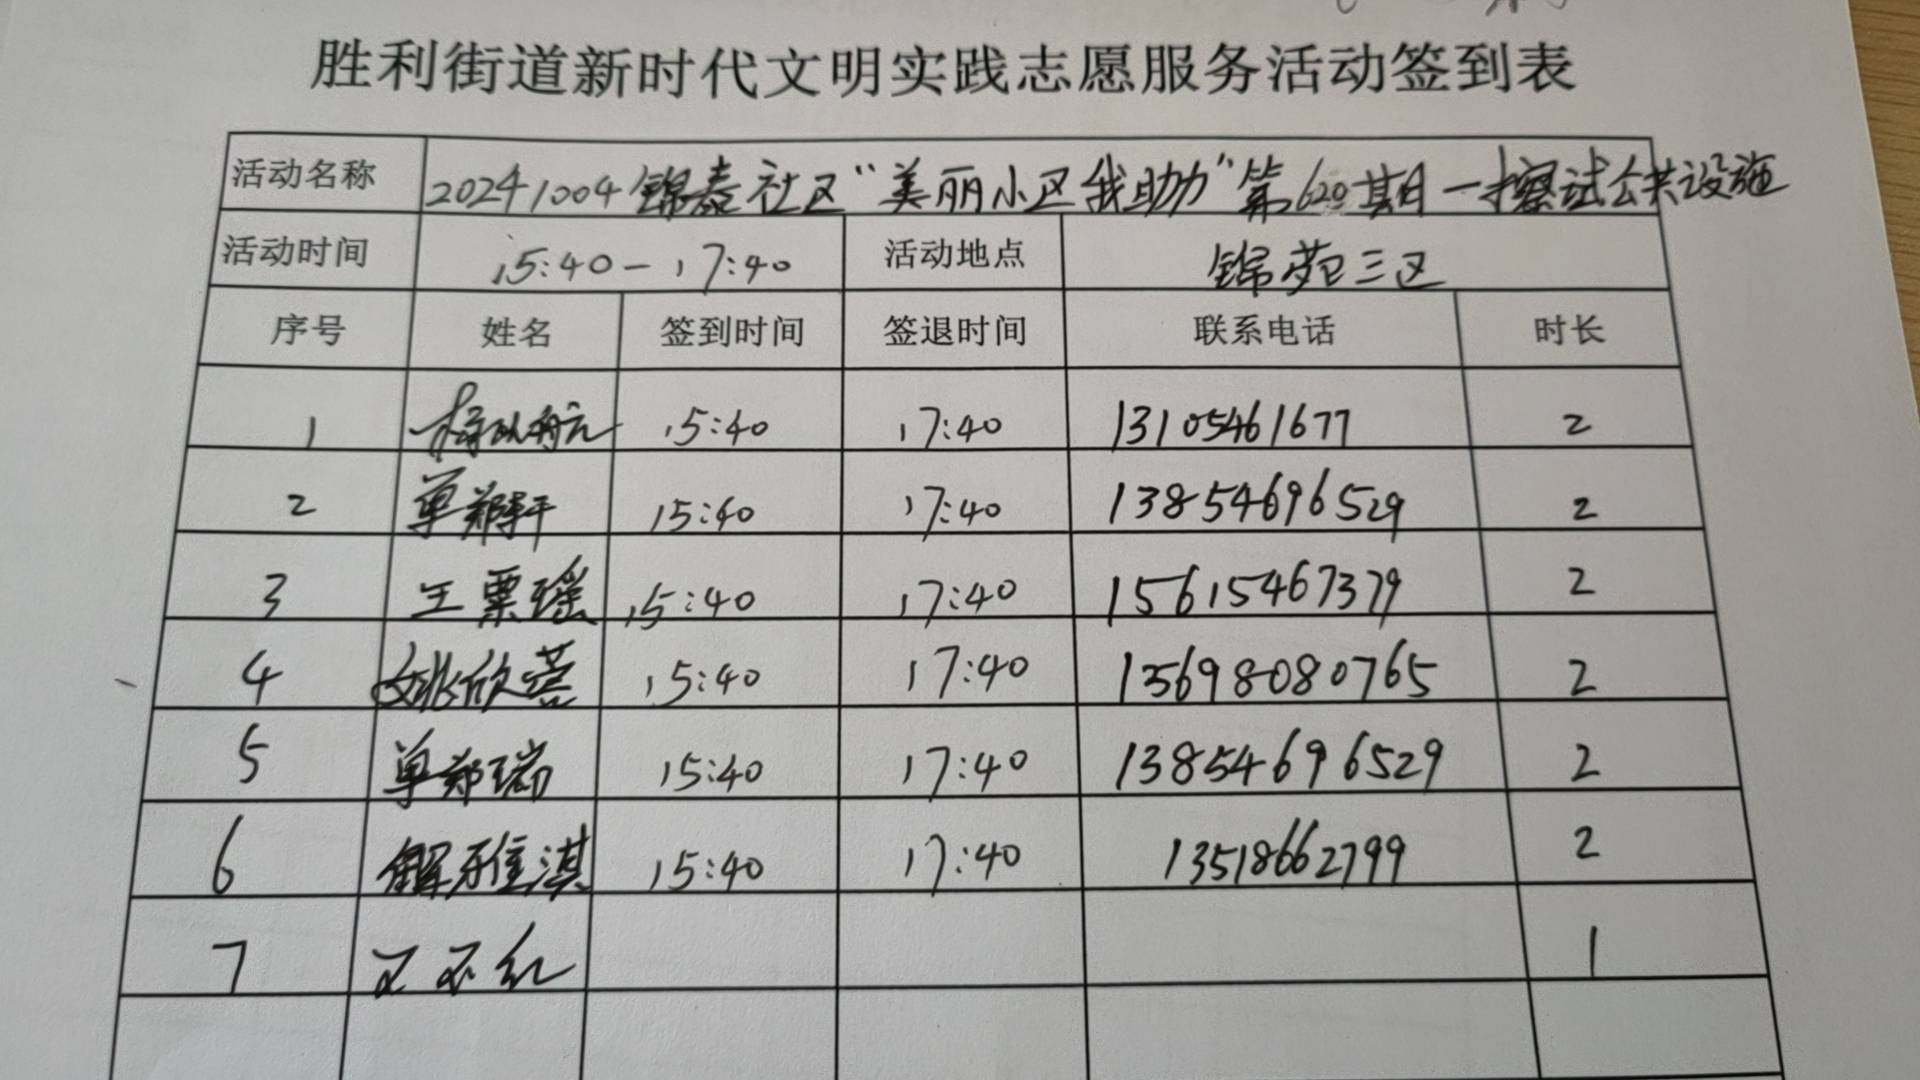 胜利街道新时代文明实践志愿服务活动签到表
活动名称 20241004锦泰社区“美丽小区我助力”第620期一擦试公共设施
活动时间 15:40-17:40 活动地点 锦苑三区
序号 姓名 签到时间 签退时间 联系电话 时长
1 15:40 17:40 13105461677 2
2 单郑轩 15:40 17:40 13854696529 2
3 王票瑶 15:40 17:40 15615467379 2
4 姚欣蓉 15:40 17:40 13698080765 2
5 单郑瑞 15:40 17:40 13854696529 2
6 解雅淇 15:40 17:40 13518662799 2
7 1